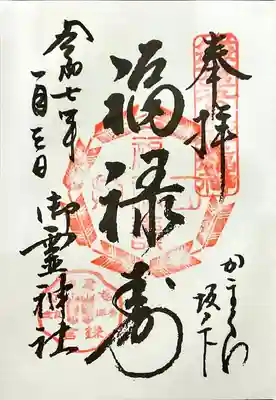 奉拝
かまくら
坂ノ下
福禄寿
令和七年
一月三日
御霊神社